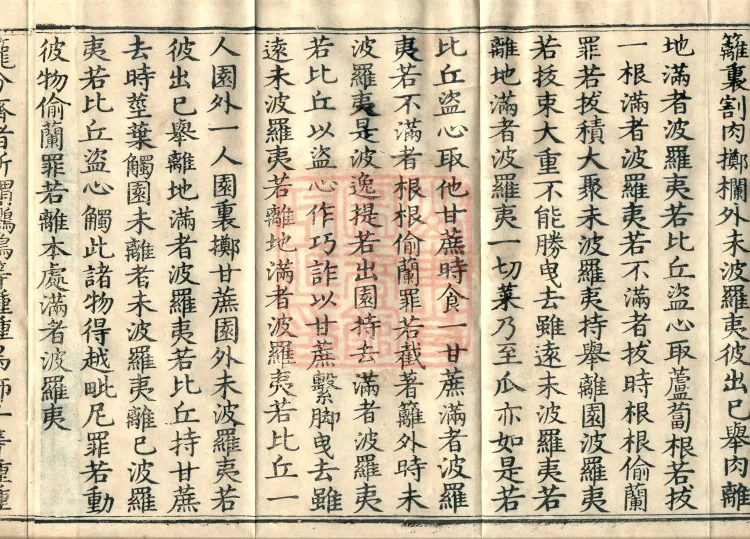 籬裏割肉擲欄外未波羅夷彼出已舉肉離
地滿者波羅夷若比丘盜心取蘆蔔根若拔
一根滿者波羅夷若不滿者拔時根根偷蘭
罪若拔積大聚未波羅夷持舉離園波羅夷
若拔束大重不能勝曳去雖遠未波羅夷若
離地滿者波羅夷一切菜乃至瓜亦如是若
比丘盜心取他甘蔗時食一甘蔗滿者波羅
夷若不滿者根根偷蘭罪若截著籬外時未
波羅夷是波逸提若出園持去滿者波羅夷
若比丘以盜心作巧詐以甘蔗繫脚曳去雖
遠未波羅夷若離地滿者波羅夷若比丘一
人園外一人園裏擲甘蔗園外未波羅夷若
彼出已舉離地滿者波羅夷若比丘持甘蔗
去時莖葉觸園未離者未波羅夷離已波羅
夷若比丘盜心觸此諸物得越毗尼罪若動
彼物偷蘭罪若離本處滿者波羅夷
籠分齊者所謂鸚鵡等種種鳥師子等種種